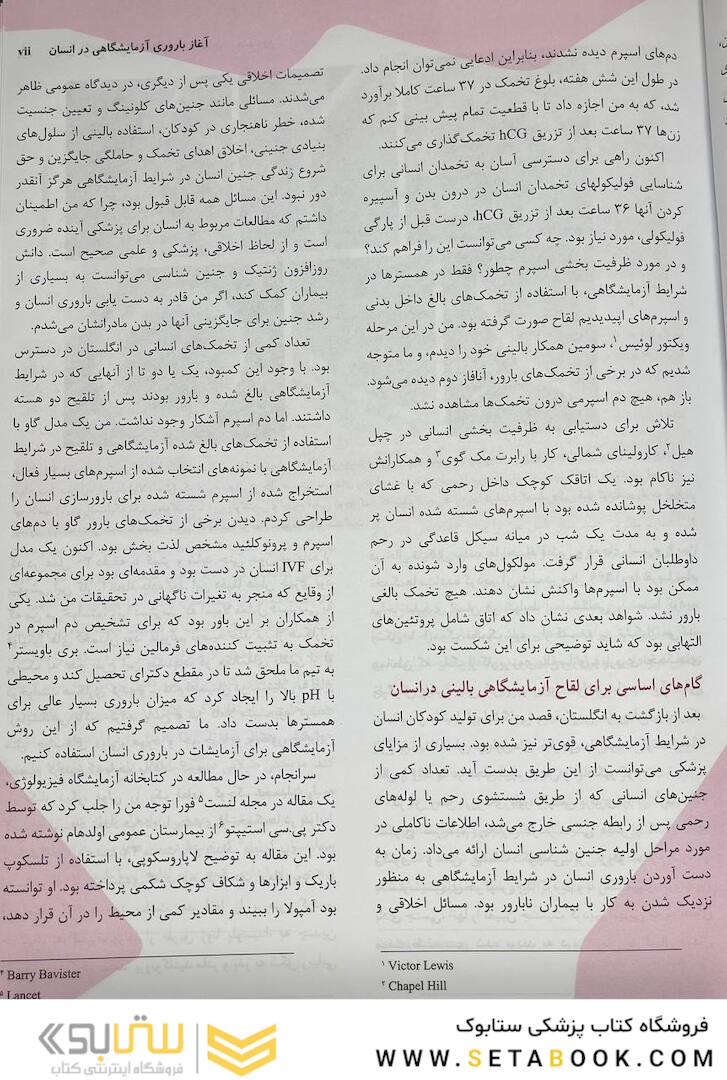 آغاز باروری آزمایشگاهی در انسان vii
دم‌های اسپرم دیده نشدند، بنابراین ادعایی نمی‌توان انجام داد.
در طول این شش هفته، بلوغ تخمک در ۳۷ ساعت کاملا برآورد
شد، که به من اجازه داد تا با قطعیت تمام پیش بینی کنم که
زن‌ها ۳۷ ساعت بعد از تزریق hCG تخمک‌گذاری می‌کنند.
اکنون راهی برای دسترسی آسان به تخمدان انسانی برای
شناسایی فولیکولهای تخمدان انسان در درون بدن و آسپیره
کردن آنها ۳۶ ساعت بعد از تزریق hCG، درست قبل از پارگی
فولیکولی، مورد نیاز بود. چه کسی می‌توانست این را فراهم کند؟
و در مورد ظرفیت بخشی اسپرم چطور؟ فقط در همسترها در
شرایط آزمایشگاهی، با استفاده از تخمک‌های بالغ داخل بدنی
و اسپرم‌های اپیدیدیم لقاح صورت گرفته بود. من در این مرحله
ویکتور لوئیس۱، سومین همکار بالینی خود را دیدم، و ما متوجه
شدیم که در برخی از تخمک‌های بارور، آنافاز دوم دیده می‌شود.
باز هم، هیچ دم اسپرمی درون تخمک‌ها مشاهده نشد.
تلاش برای دستیابی به ظرفیت بخشی انسانی در چپل
هیل۲، کارولینای شمالی، کار با رابرت مک گوی۳ و همکارانش
نیز ناکام بود. یک اتاقک کوچک داخل رحمی که با غشای
متخلخل پوشانده شده بود با اسپرم‌های شسته شده انسان پر
شده و به مدت یک شب در میانه سیکل قاعدگی در رحم
داوطلبان انسانی قرار گرفت. مولکول‌های وارد شونده به آن
ممکن بود با اسپرم‌ها واکنش نشان دهند. هیچ تخمک بالغی
بارور نشد. شواهد بعدی نشان داد که اتاق شامل پروتئین‌های
التهابی بود که شاید توضیحی برای این شکست بود.
گام‌های اساسی برای لقاح آزمایشگاهی بالینی درانسان
بعد از بازگشت به انگلستان، قصد من برای تولید کودکان انسان
در شرایط آزمایشگاهی، قوی‌تر نیز شده بود. بسیاری از مزایای
پزشکی می‌توانست از این طریق بدست آید. تعداد کمی از
جنین‌های انسانی که از طریق شستشوی رحم یا لوله‌های
رحمی پس از رابطه جنسی خارج می‌شد، اطلاعات ناکاملی در
مورد مراحل اولیه جنین شناسی انسان ارائه می‌داد. زمان به
دست آوردن باروری انسان در شرایط آزمایشگاهی به منظور
نزدیک شدن به کار با بیماران نابارور بود. مسائل اخلاقی و
۱ Victor Lewis
۲ Chapel Hill
تصمیمات اخلاقی یکی پس از دیگری، در دیدگاه عمومی ظاهر
می‌شدند. مسائلی مانند جنین‌های کلونینگ و تعیین جنسیت
شده، خطر ناهنجاری در کودکان، استفاده بالینی از سلول‌های
بنیادی جنینی، اخلاق اهدای تخمک و حاملگی جایگزین و حق
شروع زندگی جنین انسان در شرایط آزمایشگاهی هرگز آنقدر
دور نبود. این مسائل همه قابل قبول بود، چرا که من اطمینان
داشتم که مطالعات مربوط به انسان برای پزشکی آینده ضروری
است و از لحاظ اخلاقی، پزشکی و علمی صحیح است. دانش
روزافزون ژنتیک و جنین شناسی می‌توانست به بسیاری از
بیماران کمک کند، اگر من قادر به دست یابی باروری انسان و
رشد جنین برای جایگزینی آنها در بدن مادرانشان می‌شدم.
تعداد کمی از تخمک‌های انسانی در انگلستان در دسترس
بود. با وجود این کمبود، یک یا دو تا از آنهایی که در شرایط
آزمایشگاهی بالغ شده و بارور بودند پس از تلقیح دو هسته
داشتند. اما دم اسپرم آشکار وجود نداشت. من یک مدل گاو با
استفاده از تخمک‌های بالغ شده آزمایشگاهی و تلقیح در شرایط
آزمایشگاهی با نمونه‌های انتخاب شده از اسپرم‌های بسیار فعال،
استخراج شده از اسپرم شسته شده برای بارورسازی انسان را
طراحی کردم. دیدن برخی از تخمک‌های بارور گاو با دم‌های
اسپرم و پرونوکلئید مشخص لذت بخش بود. اکنون یک مدل
برای IVF انسان در دست بود و مقدمه‌ای بود برای مجموعه‌ای
از وقایع که منجر به تغیرات ناگهانی در تحقیقات من شد. یکی
از همکاران بر این باور بود که برای تشخیص دم اسپرم در
تخمک به تثبیت کننده‌های فرمالین نیاز است. بری باویستر۴
به تیم ما ملحق شد تا در مقطع دکترای تحصیل کند و محیطی
با pH بالا را ایجاد کرد که میزان باروری بسیار عالی برای
همسترها بدست داد. ما تصمیم گرفتیم که از این روش
آزمایشگاهی برای آزمایشات در باروری انسان استفاده کنیم.
سرانجام، در حال مطالعه در کتابخانه آزمایشگاه فیزیولوژی،
یک مقاله در مجله لنست۵ فورا توجه من را جلب کرد که توسط
دکتر پی.سی استیپتو۶ از بیمارستان عمومی اولدهام نوشته شده
بود. این مقاله به توضیح لاپاروسکوپی، با استفاده از تلسکوپ
باریک و ابزارها و شکاف کوچک شکمی پرداخته بود. او توانسته
بود آمپولا را ببیند و مقادیر کمی از محیط را در آن قرار دهد،
۴ Barry Bavister
۵ Lancet
فروشگاه کتاب پزشکی ستابوک
WWW.SETABOOK.COM
ستابوک
فروشگاه اینترنتی کتاب